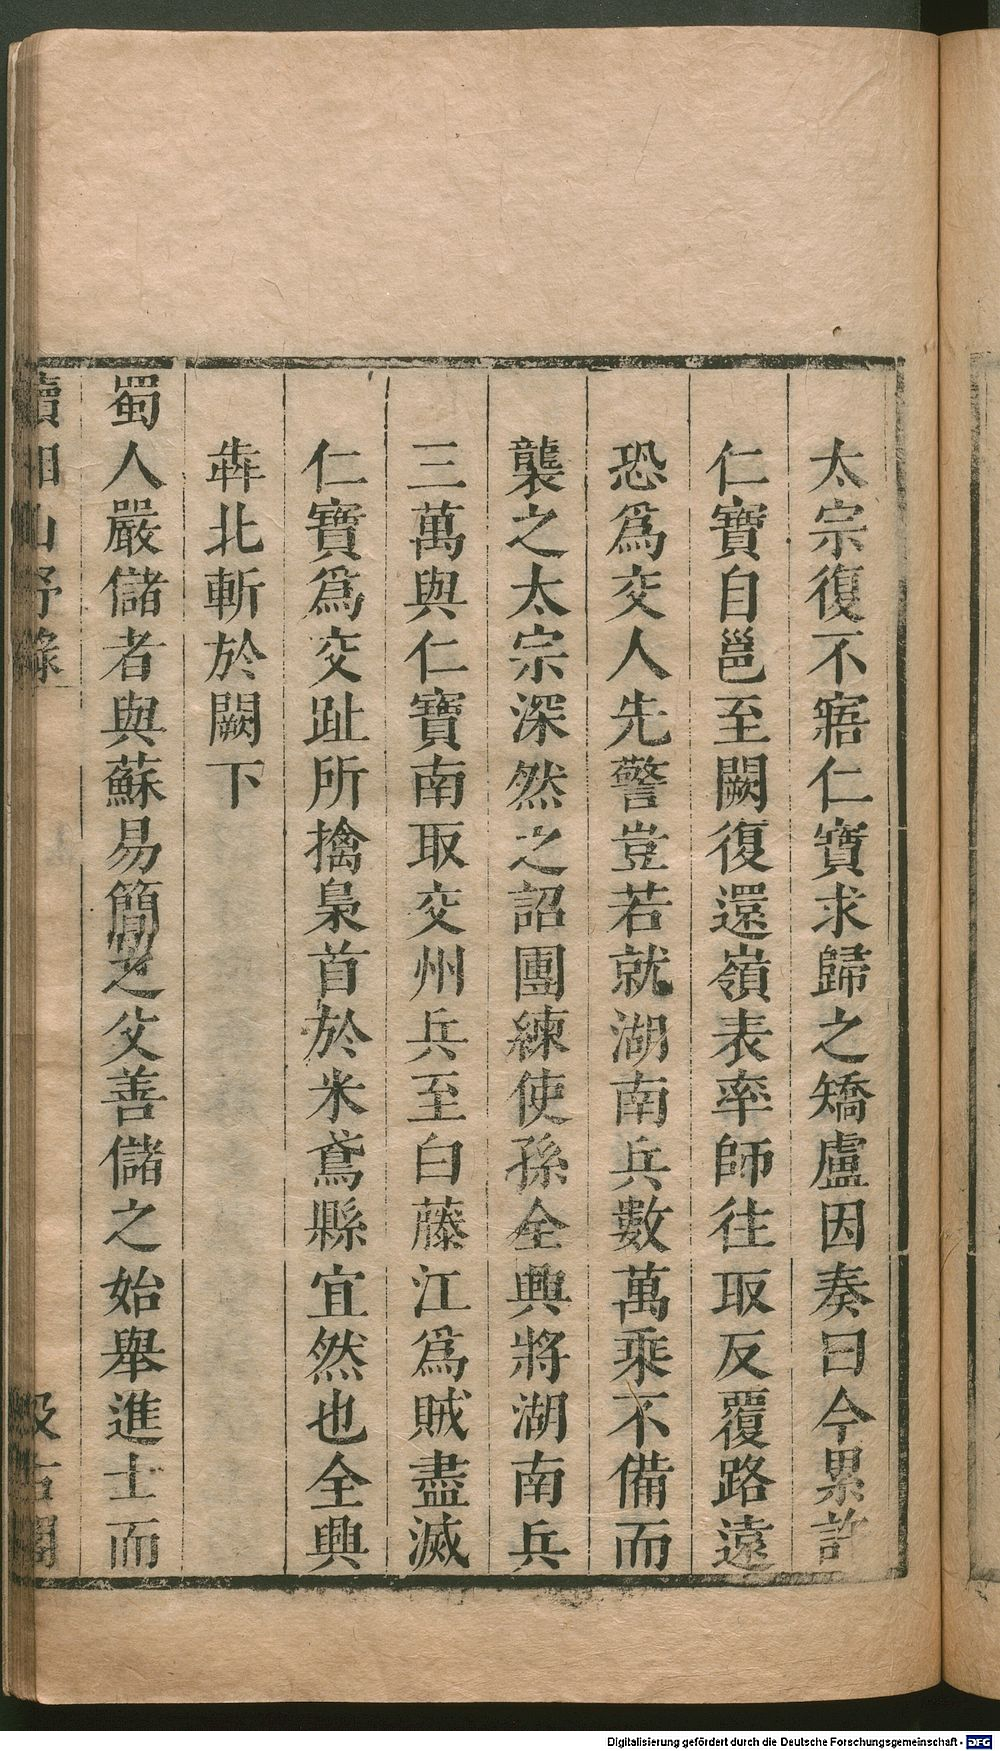 太宗復不寤仁寶求歸之矯盧因奏曰今累許
仁寶自邕至闕復還嶺表率師往取反覆路遠
恐爲交人先警豈若就湖南兵數萬乘不備而
襲之太宗深然之詔團練使孫全興將湖南兵
三萬與仁寶南取交州兵至白藤江爲賊盡滅
仁寶爲交趾所擒梟首於米鳶縣宜然也全興
犇北斬於闕下
蜀人嚴儲者與蘇易簡之父善儲之始舉進士而
續湘山野錄
汲古閣
Digitalisierung gefördert durch die Deutsche Forschungsgemeinschaft - DFG